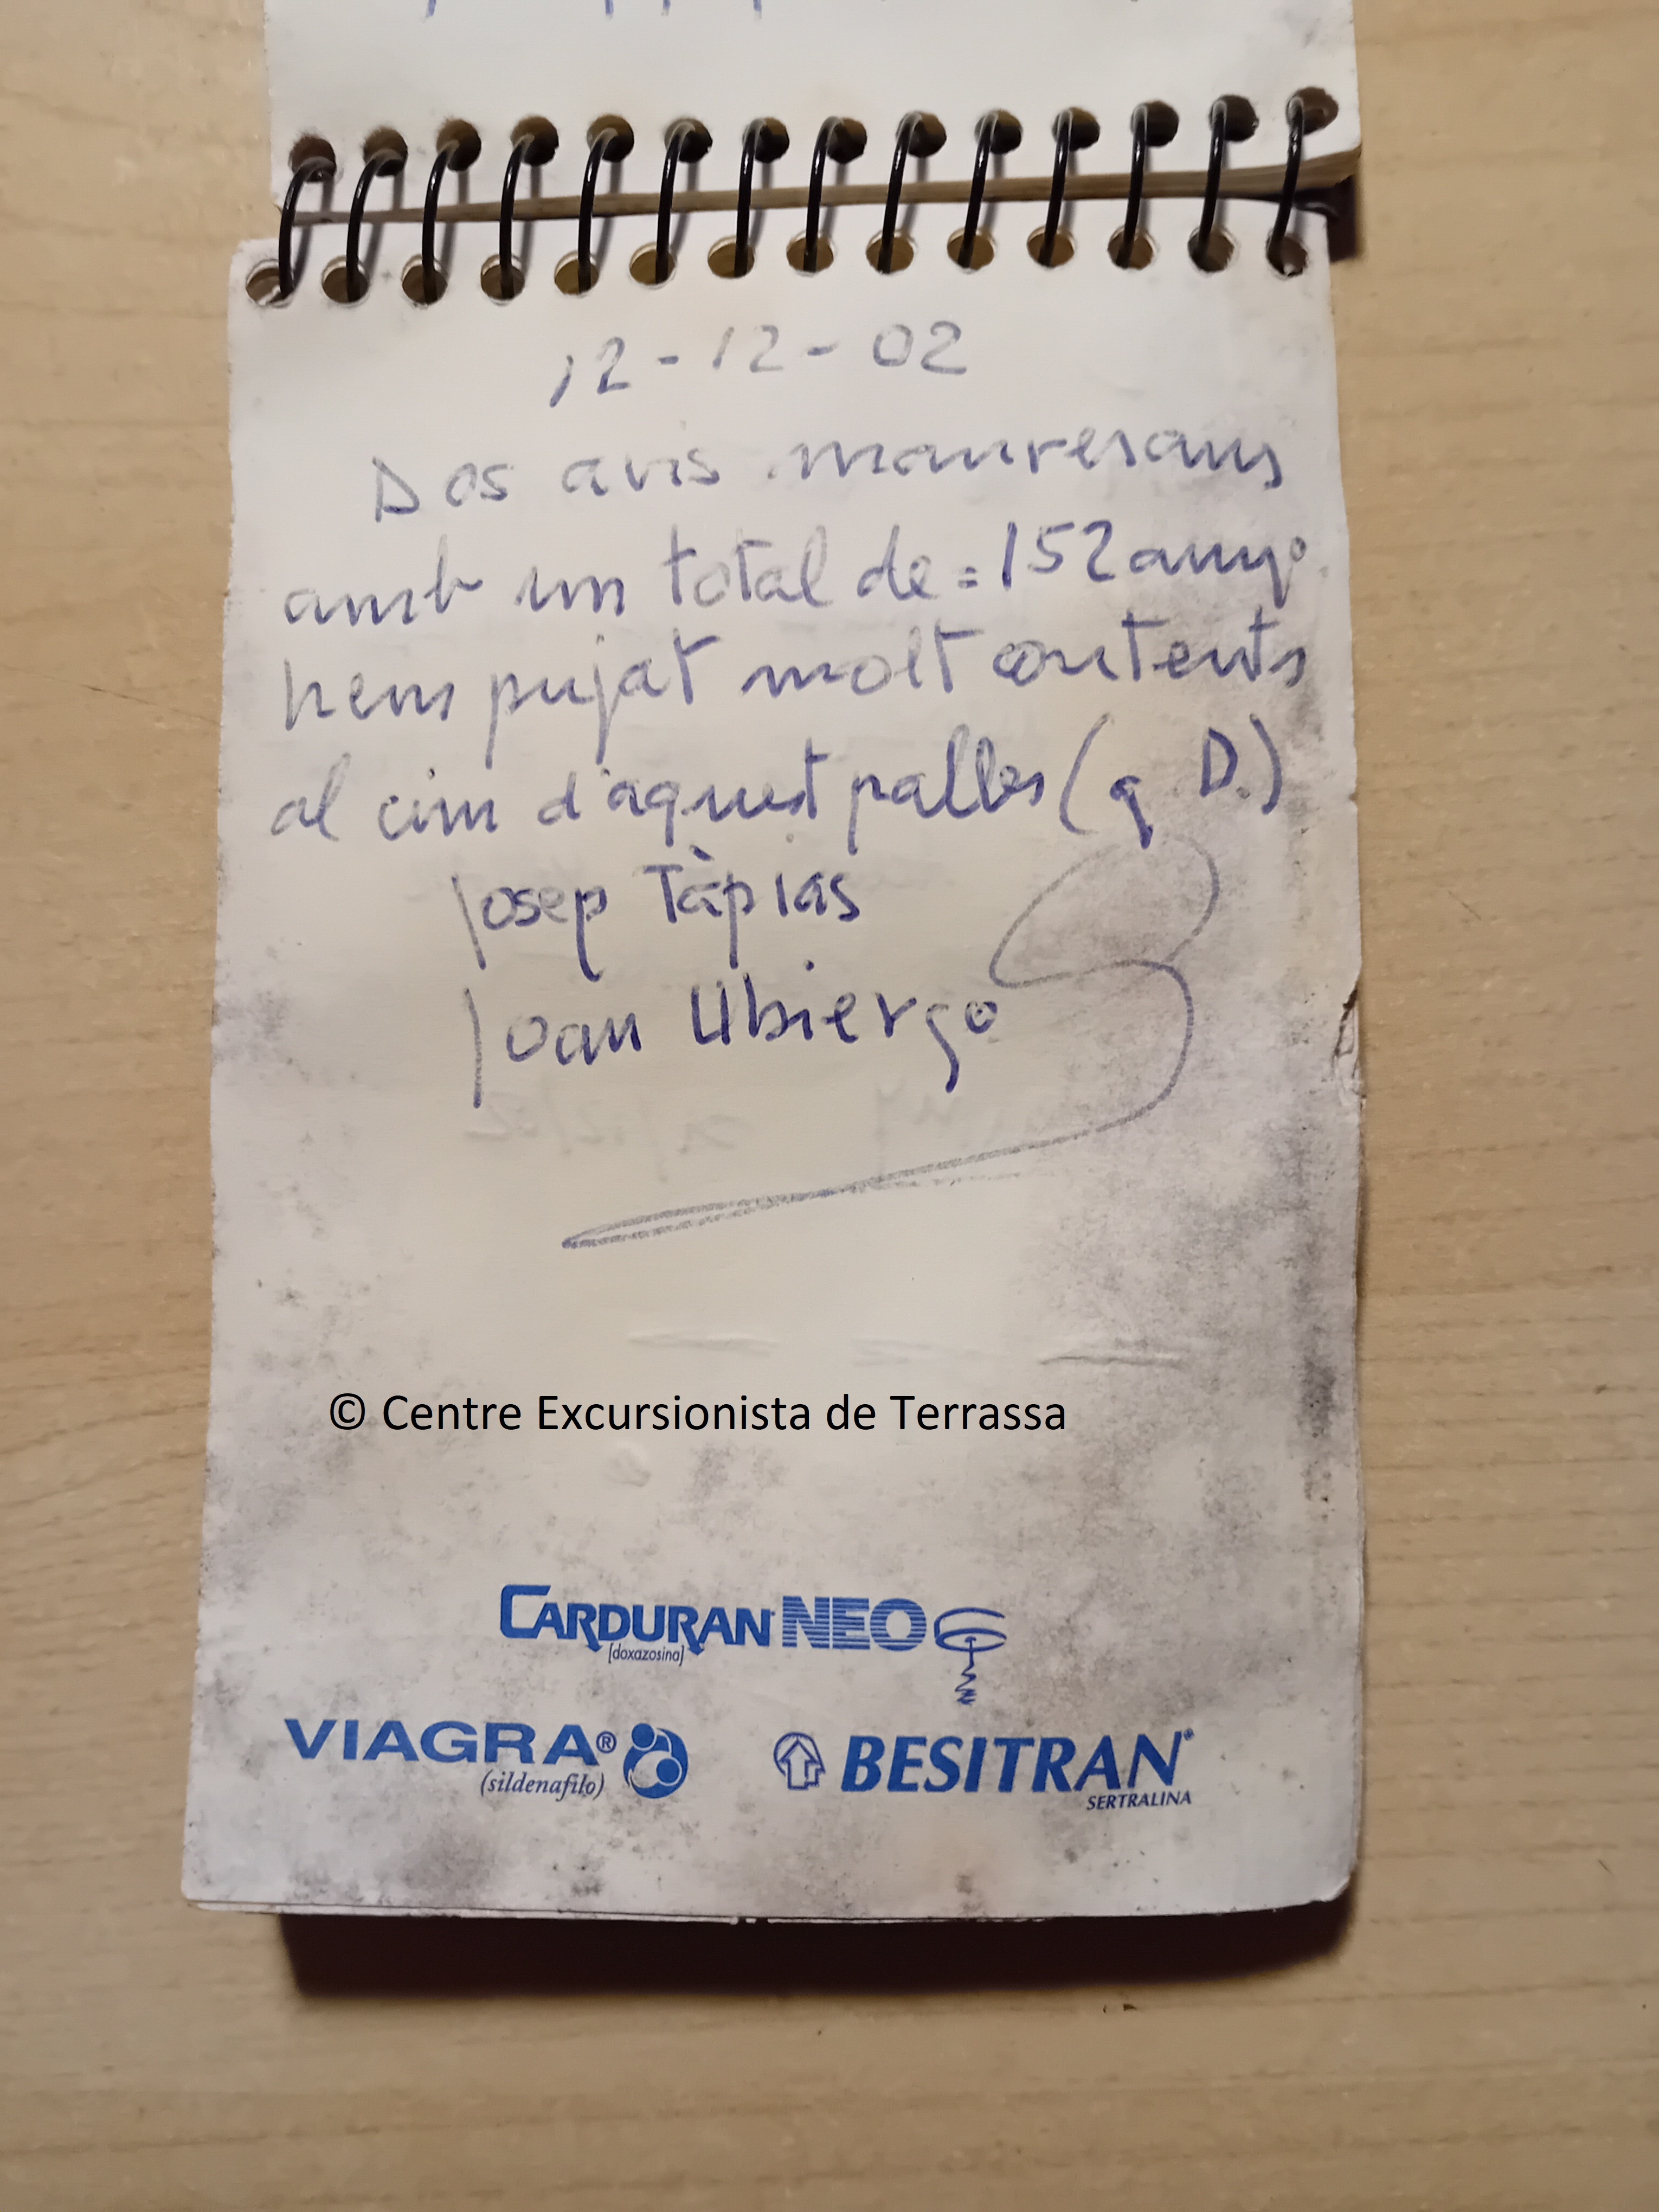 12-12-02
Dos avis manresans
amb un total de = 152 anys
hem pujat molt contents
al cim d'aquest paller (q D.)
Josep Tàpias
Joan Ubiergo
© Centre Excursionista de Terrassa
CARDURAN NEO
[doxazosina]
VIAGRA®
(sildenafilo)
BESITRAN®
SERTRALINA